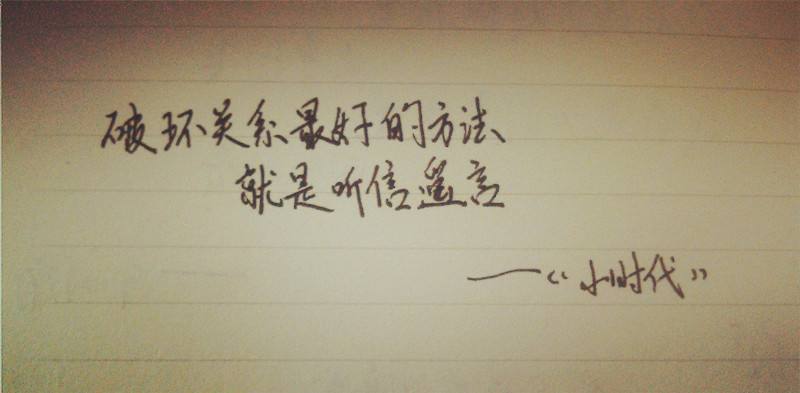 破坏关系最好的方法、
就是听信遥言
——《小时代》